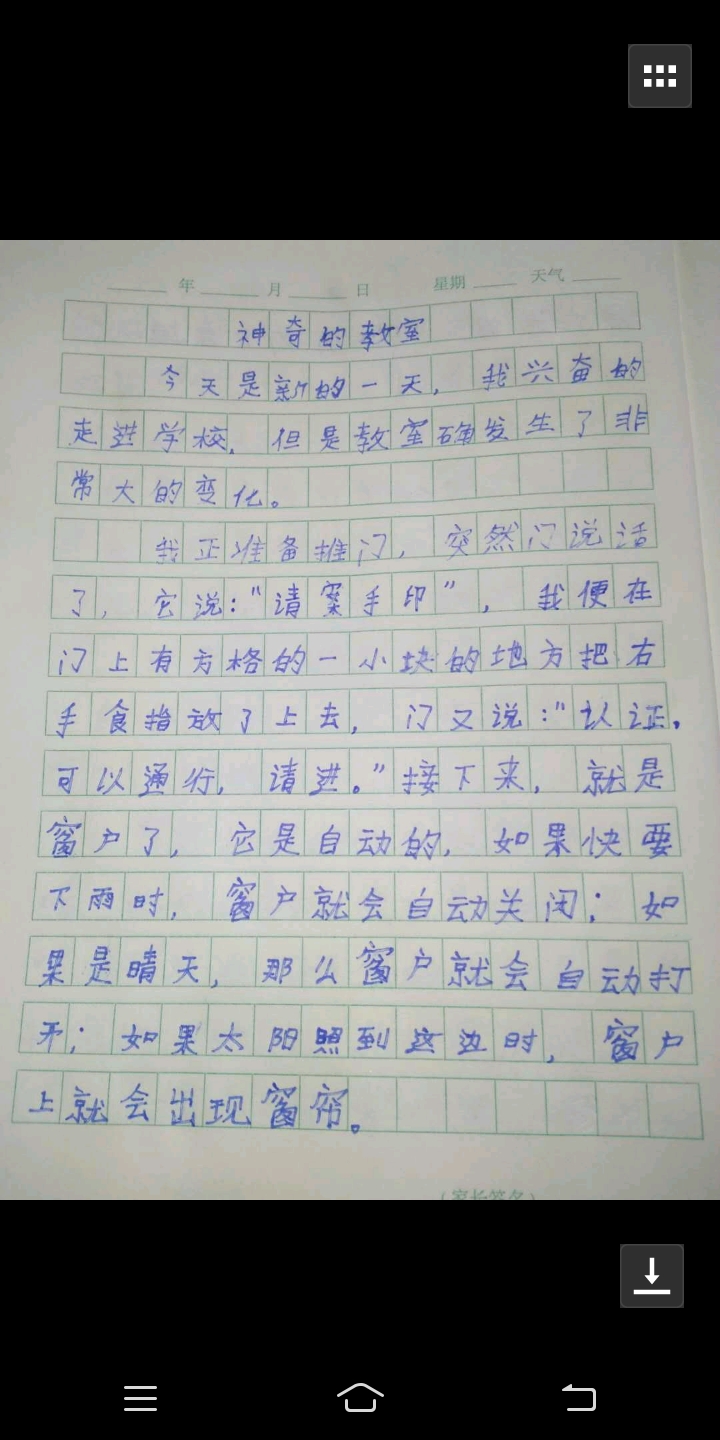 年 月 日 星期 天气
神奇的教室
今天是新的一天，我兴奋的
走进学校，但是教室确发生了非
常大的变化。
我正准备推门，突然门说话
了，它说：“请案手印”，我便在
门上有方格的一小块的地方把右
手食指放了上去，门又说：“认证，
可以通行，请进。”接下来，就是
窗户了，它是自动的，如果快要
下雨时，窗户就会自动关闭；如
果是晴天，那么窗户就会自动打
开；如果太阳照到这边时，窗户
上就会出现窗帘。
（家长签名）